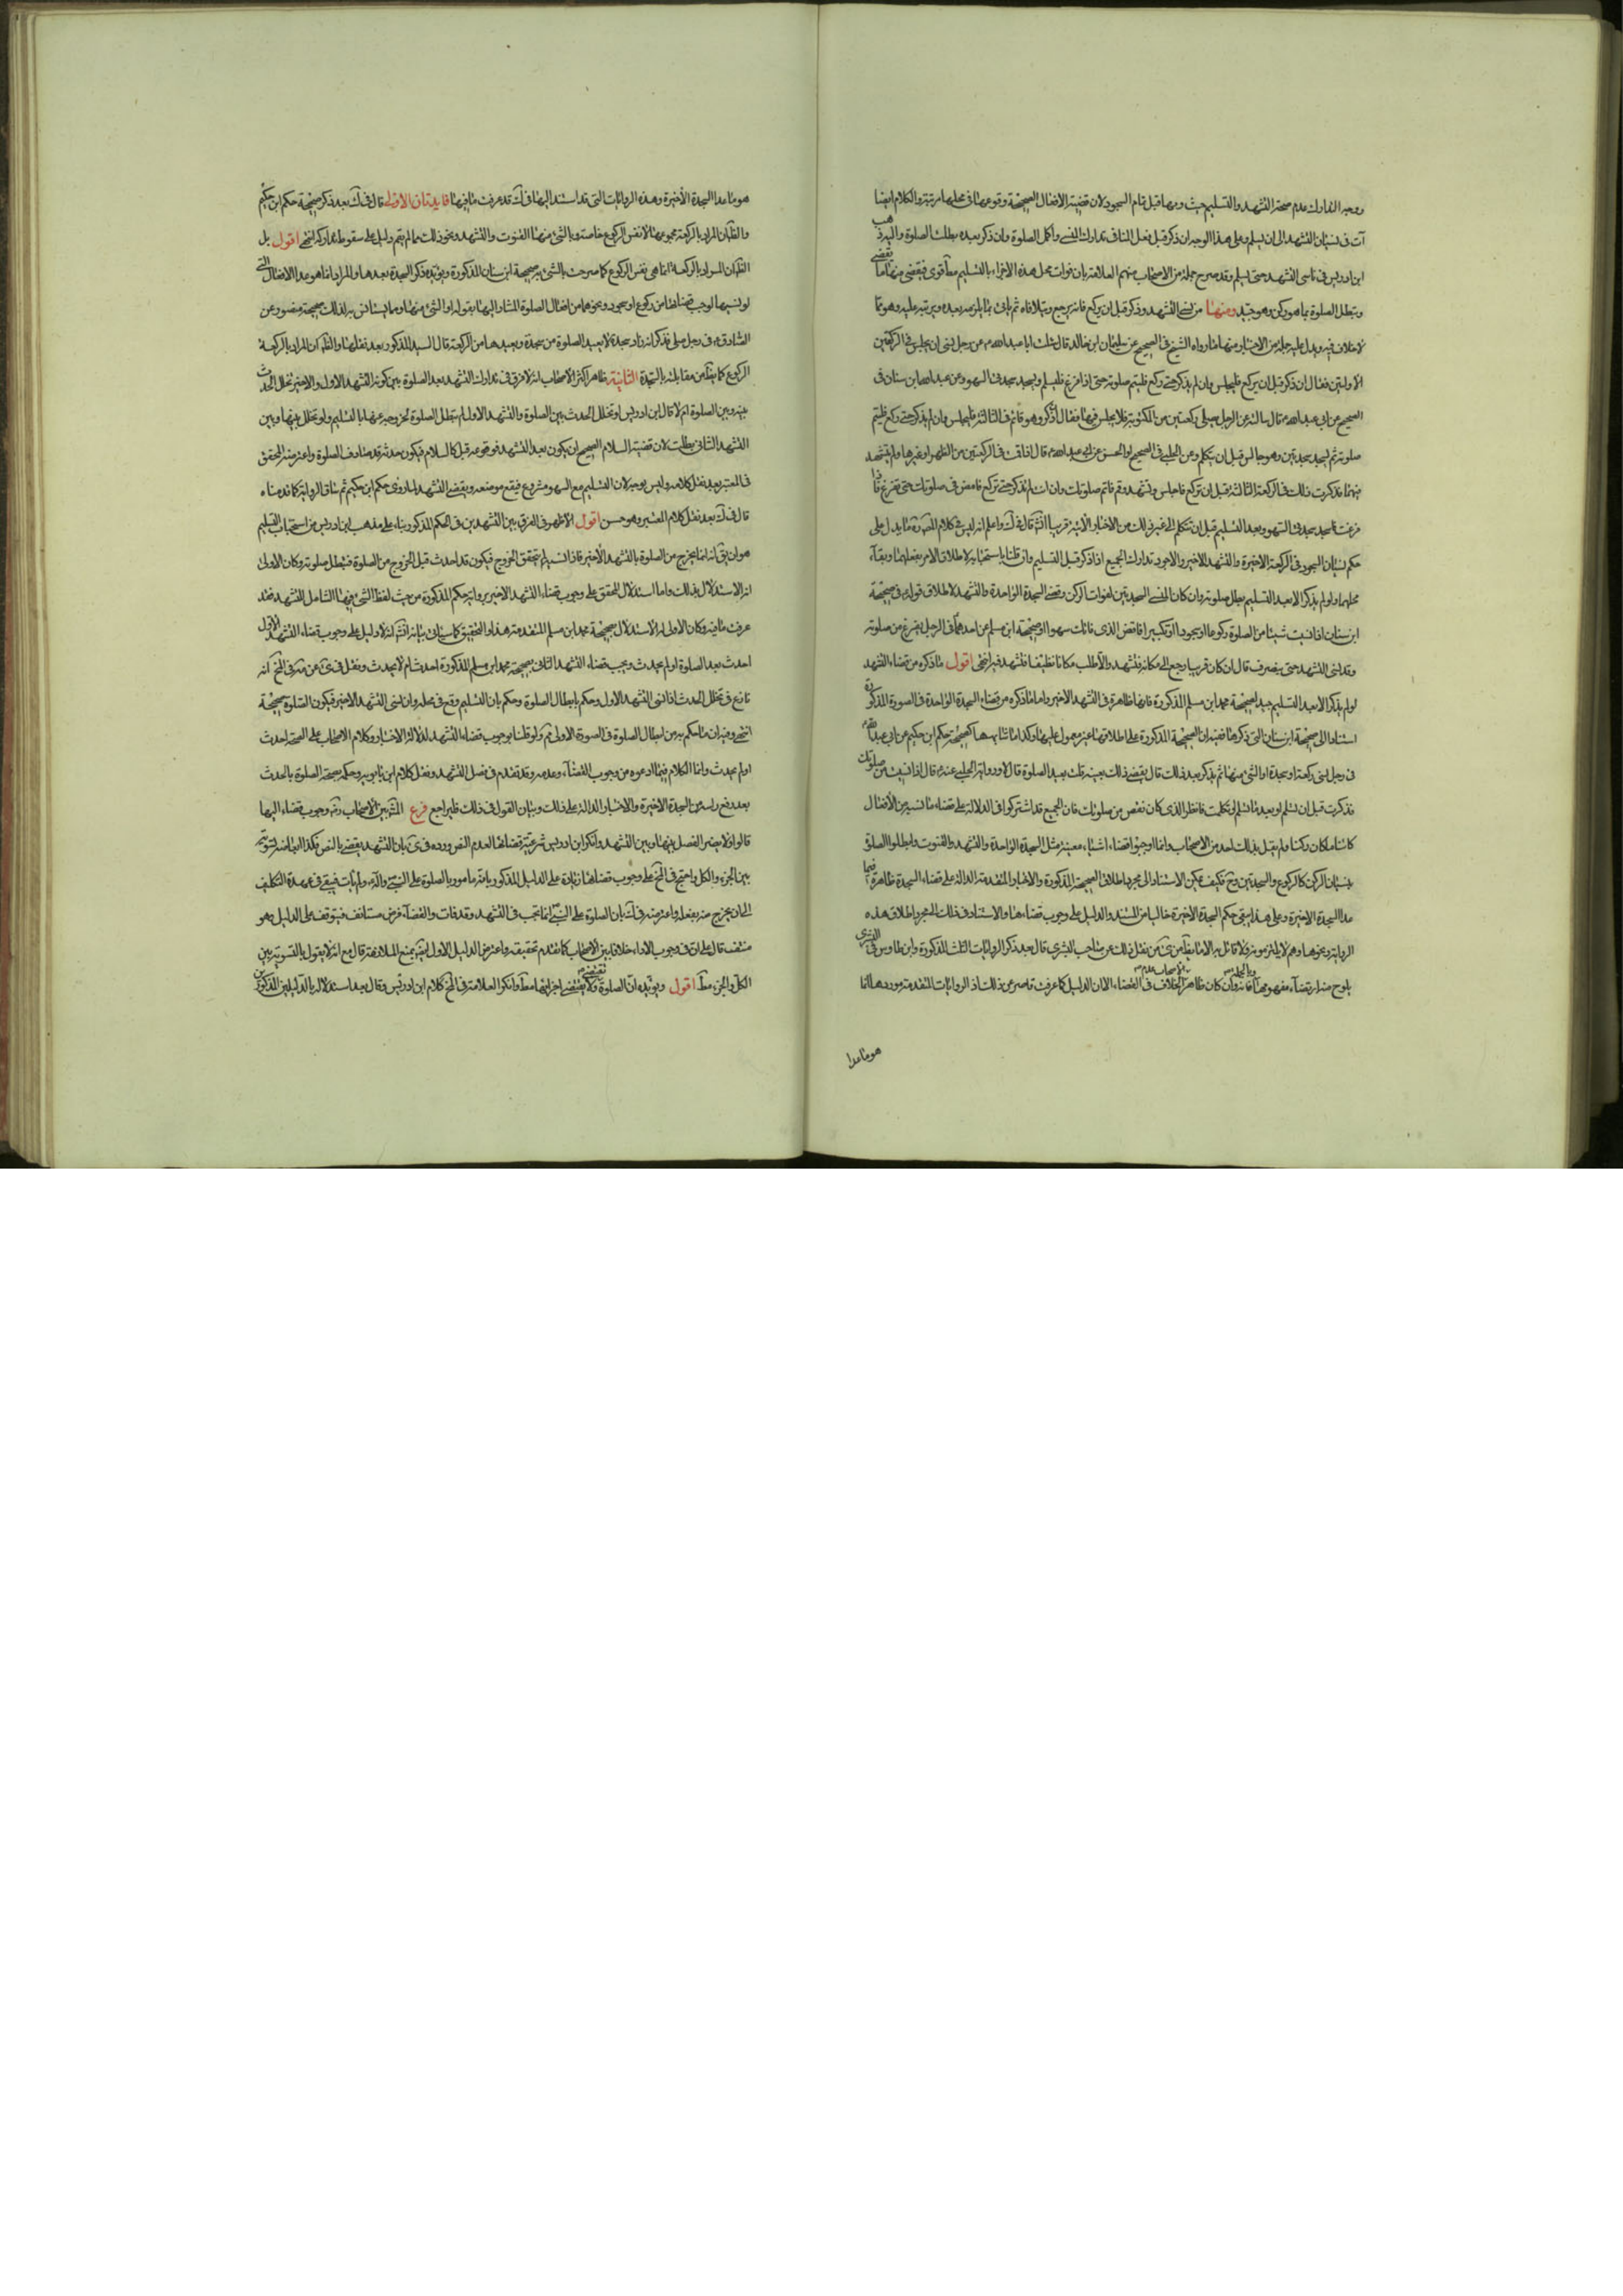 ووجه التدارك عدم صحة التشهد والتسليم حيث وقعا قبل تمام السجود لان قضية الافعال الصحيحة وقوعها فى محلها مرتبة والكلام ايضا
آت فى نسيان التشهد الى ان يسلم وعلى هذا الوجه ان ذكر قبل فعل المنافى تدارك المنسى واكمل الصلوة وان ذكر بعده بطلت الصلوة
ابن ادريس فى ناسى التشهد حتى يسلم وقد صرح جملة من الاصحاب منهم العلامة بان فوات محل هذه الاجزاء بالتسليم مطلقا قوى فيقضى منها ما يقضى
ويبطل الصلوة بما هو ركن وهو جيد ومنها من نسى التشهد وذكر قبل ان يركع فانه يرجع ويتلافاه ثم يأتى بما يلزمه بعده ويرتبه عليه وهو مما
لا خلاف فيه ويدل عليه جملة من الاخبار ومنها ما رواه الشيخ فى الصحيح عن سليمان ابن خالد قال سئلت ابا عبد الله ع عن رجل نسى ان يجلس فى الركعتين
الاولتين فقال ان ذكر قبل ان يركع فليجلس وان لم يذكر حتى ركع فليتم صلوته حتى اذا فرغ فليسلم وليسجد سجدتى السهو وعن عبد الله ابن سنان فى
الصحيح عن ابى عبد الله ع قال سالته عن الرجل يصلى ركعتين من المكتوبة فلا يجلس فيهما فقال ان ذكر وهو قائم فى الثالثة فليجلس وان لم يذكر حتى ركع فليتم
صلوته ثم ليسجد سجدتين وهو جالس قبل ان يتكلم وعن الحلبى فى الصحيح او الحسن عن ابى عبد الله ع قال اذا قمت فى الركعتين من الظهر او غيرها ولم تتشهد
فيهما فذكرت ذلك فى الركعة الثالثة قبل ان تركع فاجلس وتشهد وقم فاتم صلوتك وان انت لم تذكر حتى تركع فامض فى صلوتك حتى تفرغ فاذا
فرغت فاسجد سجدتى السهو بعد التسليم قبل ان تتكلم الى غير ذلك من الاخبار الآتية قريبا انش قال فى ك واعلم انه ليس فى كلام المص ره ما يدل على
حكم نسيان السجود فى الركعة الاخيرة والتشهد الاخير والاجود تدارك الجميع اذا ذكر قبل التسليم وان قلنا باستحبابه لاطلاق الامر بفعلهما وبقاء
محلهما ولو لم يذكر الا بعد التسليم بطل صلوته وان كان المنسى السجدتين لفوات الركن وقضى السجدة الواحدة والتشهد لاطلاق قوله ع فى صحيحة
ابن سنان اذا نسيت شيئا من الصلوة ركوعا او سجودا او تكبيرا فاقض الذى فاتك سهوا وصحيحة ابن مسلم عن احدهما ع فى الرجل يفرغ من صلوته
وقد نسى التشهد حتى ينصرف قال ان كان قريبا رجع الى مكانه فتشهد والا طلب مكانا نظيفا فتشهد فيه انتهى اقول ما ذكره من قضاء التشهد
لو لم يذكر الا بعد التسليم جيد لصحيحة محمد ابن مسلم المذكورة فانها ظاهرة فى التشهد الاخير واما ما ذكره من قضاء السجدة الواحدة فى الصورة المذكورة
استنادا الى صحيحة ابن سنان التى ذكرها ففيه ان الصحيحة المذكورة على اطلاقها غير معمول عليها وكذا ما شابهها كصحيحة حكم ابن حكيم عن ابى عبد الله ع
فى رجل نسى ركعة او سجدة او الشئ منها ثم يذكر بعد ذلك قال يقضى ذلك بعينه قلت يعيد الصلوة قال لا ورواية الحلبى عنه ع قال اذا نسيت من صلوتك
فذكرت قبل ان تسلم او بعد ما تسلم او تكلمت فانظر الذى كان نقص من صلوتك فان الجميع قد اشتركوا فى الدلالة على قضاء ما نسيه من الافعال
كائنا ما كان ركنا ولم يقل بذلك احد من الاصحاب وانما اوجبوا قضاء اشياء معينة مثل السجدة الواحدة والتشهد والقنوت وابطلوا الصلوة
بنسيان الركن كالركوع والسجدتين وح فكيف يمكن الاستناد الى مجرد اطلاق الصحيحة المذكورة والاخبار المتقدمة الدالة على قضاء السجدة ظاهرة فيما
عدا السجدة الاخيرة وعلى هذا يبقى حكم السجدة الاخيرة خاليا من المستند والدليل على وجوب قضاءها والاستناد فى ذلك الى مجرد اطلاق هذه
الرواية ونحوها وهم لا يلتزمونه ولا قائل به الا ما نقل عن صاحب البشرى قال بعد ذكر الروايات الثلث المذكورة وابن طاوس فى البشرى
يلوح منه ارتضاء مفهومها وبالجملة فانه وان كان ظاهر الاصحاب عدم الخلاف فى القضاء الا ان الدليل كما عرفت قاصر عن ذلك اذ الروايات المتقدمة موردها انما
هو ما عدا
هو ما عدا السجدة الاخيرة وهذه الروايات التى قد استند اليها فى ك قد عرفت ما فيها فايدتان الاولى قال فى ك بعد ذكر صحيحة حكم ابن حكيم
والظ ان المراد بالركعة مجموعها لا نفس الركوع خاصة وبالشئ منها القنوت والتشهد ونحو ذلك مما لم يقم دليل على سقوط تداركه انتهى اقول بل
الظ ان المراد بالركعة انما هى نفس الركوع كما صرحت بالشئ به صحيحة ابن سنان المذكورة ويؤيده ذكر السجدة بعدها والمراد انما هو عد الافعال التى
لو نسيها لوجب قضائها من ركوع او سجود ونحوهما من افعال الصلوة المشار اليها بقوله او الشئ منها ومما يستانس به لذلك صحيحة منصور عن
الصادق ع فى رجل صلى فذكر انه زاد سجدة لا يعيد الصلوة من سجدة ويعيدها من الركعة قال السيد المذكور بعد نقلها والظ ان المراد بالركعة
الركوع كما يظهر من مقابلته بالسجدة الثانية ظاهر اكثر الاصحاب انه لا فرق فى تدارك التشهد بعد الصلوة بين كونه التشهد الاول والاخير تخلل الحدث
بينه وبين الصلوة ام لا قال ابن ادريس لو تخلل الحدث بين الصلوة والتشهد الاول لم تبطل الصلوة لخروجه عنها بالتسليم ولو تخلل بينها وبين
التشهد الثانى بطلت لان قضية السلام الصحيح ان يكون بعد التشهد فوقوعه قبل كلا سلام فيكون حدثه قد صادف الصلوة واعترضه المحقق
فى المعتبر بعد نقل كلامه وليس بوجه لان التسليم مع السهو مشروع فيقع موضعه ويقضى التشهد لما روى حكم ابن حكيم ثم ساق الرواية كما قدمناه
قال فى ك بعد نقل كلام المعتبر وهو حسن اقول الاظهر فى الفرق بين التشهدين فى الحكم المذكور بناء على مذهب ابن ادريس من استحباب التسليم
هو ان يق انه انما يخرج من الصلوة بالتشهد الاخير فاذا نسيه لم يتحقق الخروج فيكون قد احدث قبل الخروج من الصلوة فتبطل صلوته وكان الاولى
له الاستدلال بذلك واما استدلال المحقق على وجوب قضاء التشهد الاخير برواية حكم المذكورة من حيث لفظ الشئ فيها الشامل للتشهد فقد
عرفت ما فيه وكان الاولى له الاستدلال بصحيحة محمد ابن مسلم المتقدمة هذا والتحقيق كما سيأتى بيانه انش انه لا دليل على وجوب قضاء التشهد الاول
احدث بعد الصلوة او لم يحدث ويجب قضاء التشهد الثانى بصحيحة محمد ابن مسلم المذكورة احدث ام لا يحدث ونقل فى ى عن مة فى المخ انه
نازع فى تخلل الحدث اذا نسى التشهد الاول وحكم بابطال الصلوة وحكم بان التسليم وقع فى محله وان نسى التشهد الاخير فيكون الصلوة صحيحة
انتهى وفيه ان ما حكم به من ابطال الصلوة فى الصورة الاولى ثم ولو قلنا بوجوب قضاء التشهد لدلالة الاخبار وكلام الاصحاب على الصحة احدث
او لم يحدث وانما الكلام فيما ادعوه من وجوب القضاء وعدمه وقد تقدم فى فصل التشهد ونقل كلام ابن بابويه وحكمه بصحة الصلوة بالحدث
بعد رفع راسه من السجدة الاخيرة والاخبار الدالة على ذلك وبيان القول فى ذلك فليراجع فرع المش بين الاصحاب رض وجوب قضاء ابعاضها
قالوا لا يضر الفصل بينها وبين التشهد وانكر ابن ادريس شرعية قضائها لعدم النص ورده فى ى بان التشهد يقضى بالنص فكذا ابعاضه لتسوية
بين الجزء والكل واحتج فى المخ على وجوب قضائها زيادة على الدليل المذكور بانه مامور بالصلوة على النبى وآله ولم يأت فيبقى فى عهدة التكليف
الى ان يخرج منه بفعله واعترضه فى ك بان الصلوة على النبى ص انما تجب فى التشهد وقد فات والقضاء فرض مستانف فيتوقف على الدليل وهو
منتف قال على ان فى وجوب الاداء خلافا بين الاصحاب كما تقدم تحقيقه واعترض الدليل الاول ايض بمنع الملازمة قال مع انه لا يقول بالتسوية بين
الكل والجزء مطلقا اقول ويؤيده ان الصلوة تقضى ولا يقتضى اجزائها مطلقا وانكر العلامة فى المخ كلام ابن ادريس وقال بعد استدلاله بالدليلين المذكورين